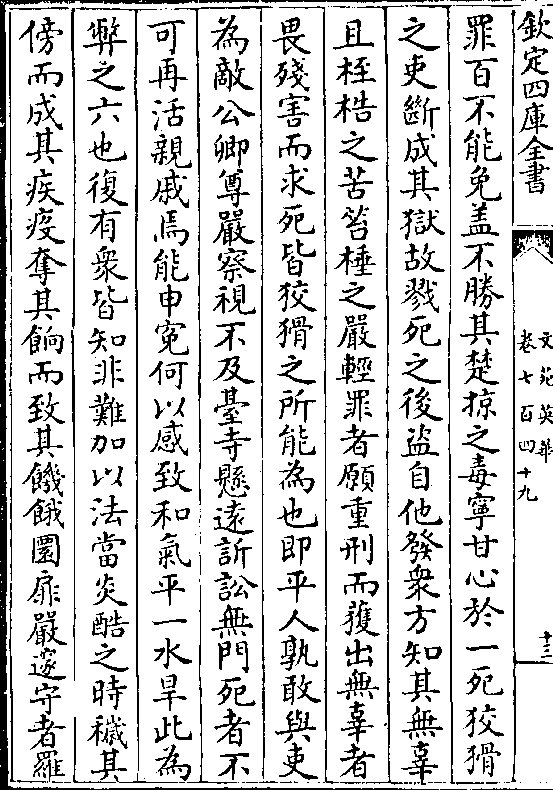 欽定四庫全書
文苑英華
卷七百四十九
十三
罪百不能免盖不勝其楚掠之毒寧甘心於一死狡猾
之吏斷成其獄故戮死之後盗自他發衆方知其無辜
且桎梏之苦笞棰之嚴輕罪者願重刑而獲出無辜者
畏殘害而求死皆狡猾之所能為也即平人孰敢與吏
為敵公卿尊嚴察視不及臺寺懸遠訴訟無門死者不
可再活親戚焉能申寃何以感致和氣平一水旱此為
弊之六也復有衆皆知非難加以法當炎酷之時穢其
傍而成其疾疫奪其餉而致其饑餓圜扉嚴邃守者羅